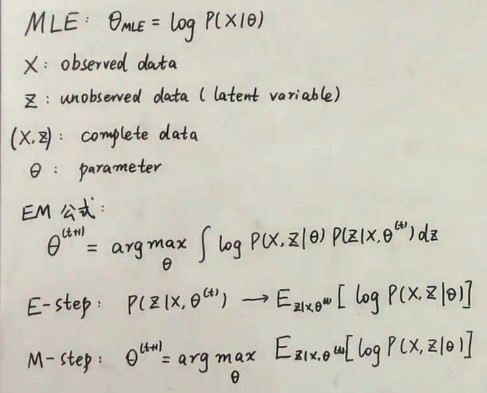 MLE: θ_MLE = log P(X|θ)
X: observed data
Z: unobserved data (latent variable)
(X,Z): complete data
θ: parameter
EM 公式:
θ^(t+1) = arg max_θ ∫ log P(X,Z|θ) P(Z|X,θ^(t)) dz
E-step: P(Z|X,θ^(t)) → E_z|x,θ^(t) [log P(X,Z|θ)]
M-step: θ^(t+1) = arg max_θ E_z|x,θ^(t) [log P(X,Z|θ)]